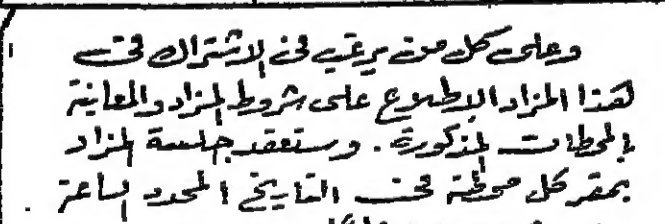 وعلى كل من يرغب في الاشتراك في
هذا المزاد الاطلاع على شروط المزاد والمعاينة
بالمحطات المذكورة . وستعقد جلسة المزاد
بمقر كل محطة في التاريخ المحدد الساعة